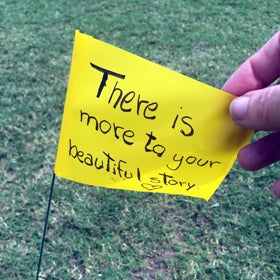 There is
more to your
beautiful story.